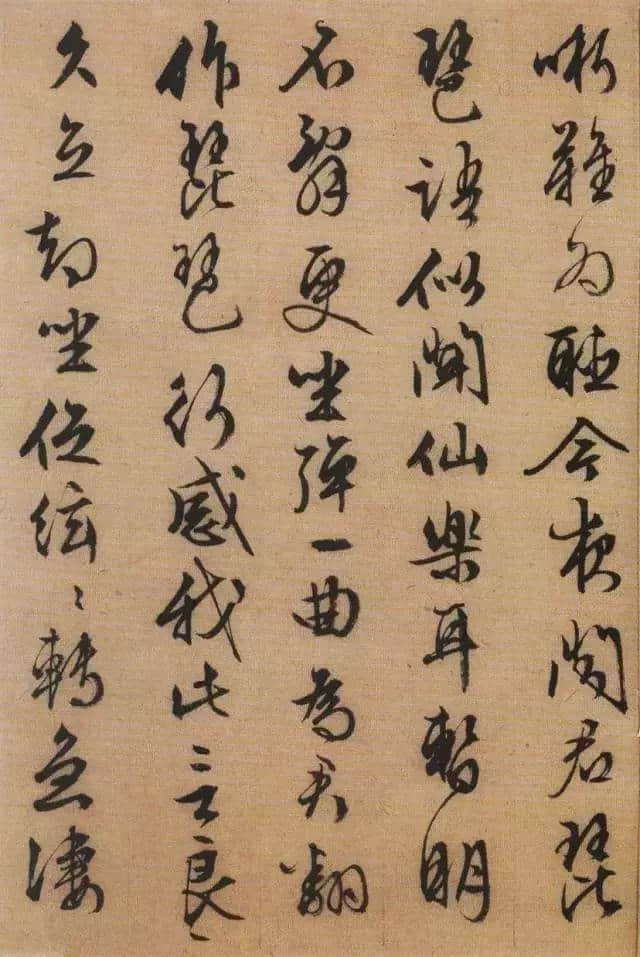 哳難為聽今夜聞君琵
琶語似聞仙樂耳暫明
不辭更坐彈一曲為君翻
作琵琶行感我此言良〻
久立却坐促絃〻轉急淒